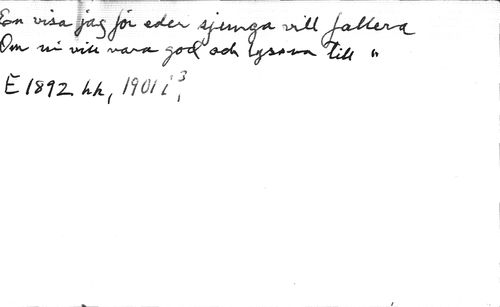 En visa jag för eder sjunga vill fallera
Om ni vill vara god och lyssna till "
E 1892 hh, 1901 i 3,